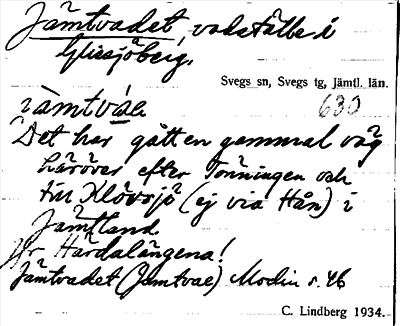 Jämtvadet, vadställe i
Glissjöberg.
Svegs sn, Svegs tg, Jämtl. län.
jämtvae 630
Det har gått en gammal väg
häröver efter Tonningen och
till Klövsjö (ej via Hån) i
Jämtland
Jfr. Härdalängena!
Jämtvadet (Jamtvae) Modin s. 46
C. Lindberg 1934.